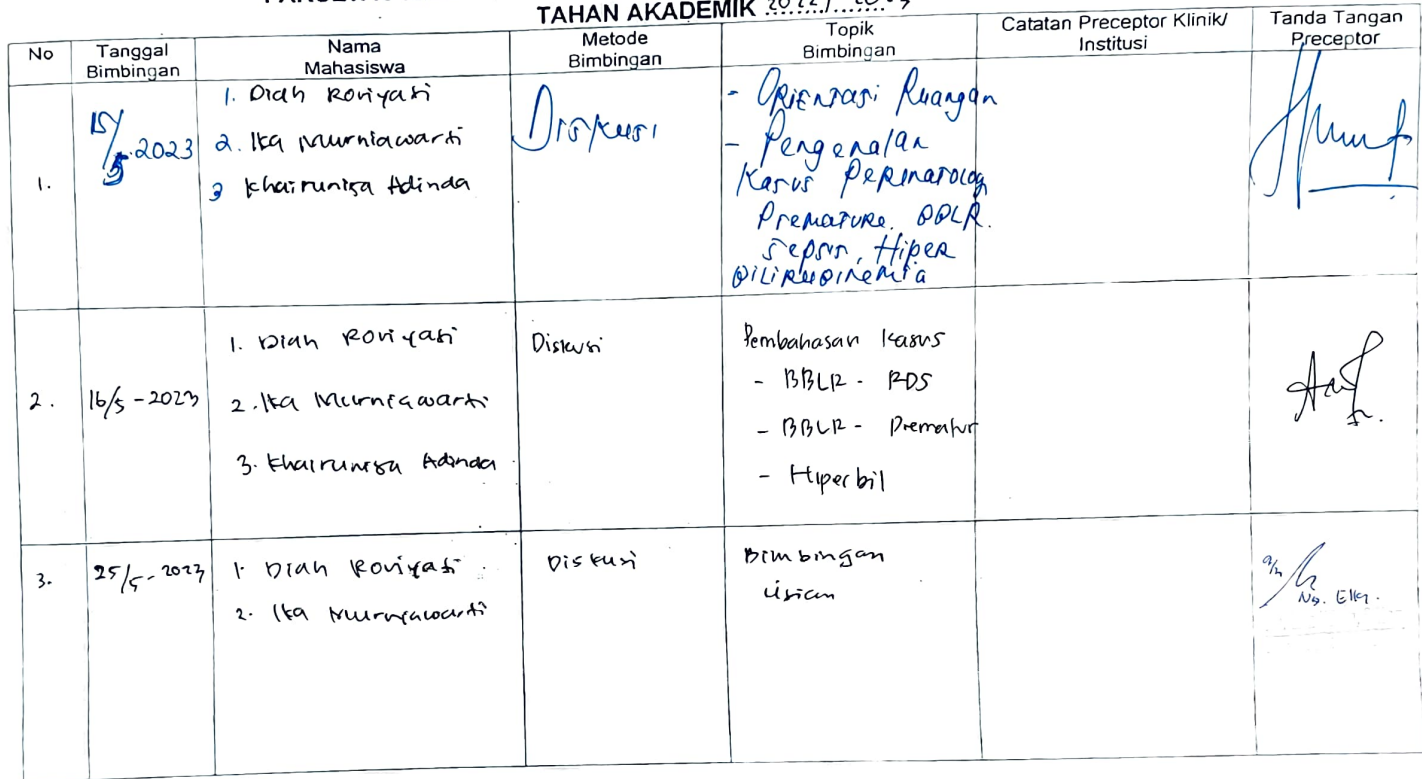 TAHAN AKADEMIK 2022/2023
No
Tanggal
Bimbingan
Nama
Mahasiswa
Metode
Bimbingan
Topik
Bimbingan
Catatan Preceptor Klinik/
Institusi
Tanda Tangan
Preceptor
1.
15/5-2023
1. Diah Roviyati
2. Ika Murniawarti
3 Khairunisa Adinda
Diskusi
- Orientasi Ruangan
- Pengenalan
Kasus Perinatologi
Premature. BBLR.
Sepsis, Hiper
Bilirubinemia
2.
16/5-2023
1. Diah Roviyati
2. Ika Murniawarti
3. Khairunisa Adinda
Diskusi
Pembahasan Kasus
- BBLR - RDS
- BBLR - Prematur
- Hiperbil
3.
25/5-2023
1. Diah Roviyati
2. Ika Murniawarti
Diskusi
Bimbingan
Ns. Elka.